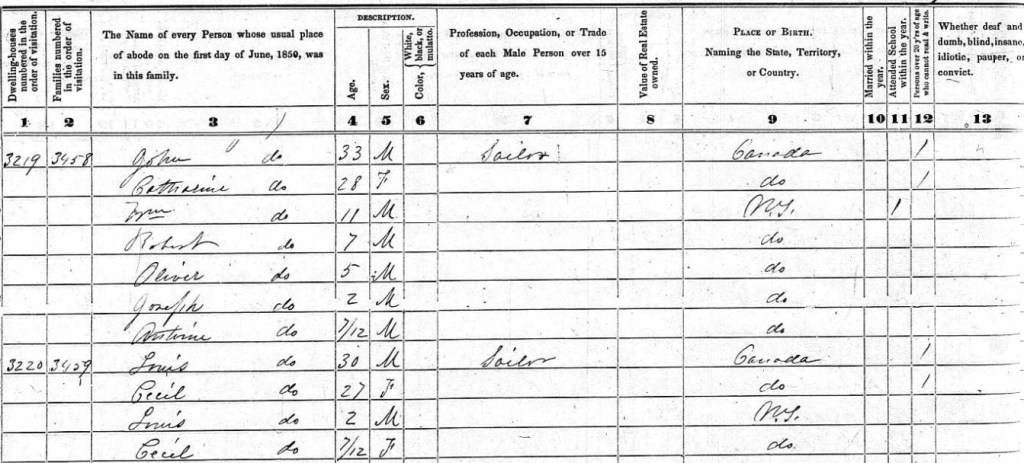 Dwelling-houses numbered in the order of visitation.
Families numbered in the order of visitation.
The Name of every Person whose usual place of abode on the first day of June, 1850, was in this family.
DESCRIPTION.
Age.
Sex.
Color, White, black, or mulatto.
Profession, Occupation, or Trade of each Male Person over 15 years of age.
Value of Real Estate owned.
PLACE OF BIRTH. Naming the State, Territory, or Country.
Married within the year.
Attended School within the year.
Persons over 20 y'rs of age who cannot read & write.
Whether deaf and dumb, blind, insane, idiotic, pauper, or convict.
1 2 3 4 5 6 7 8 9 10 11 12 13
3219 3458 John do 33 M Sailor Canada 1
Catharine do 28 F do 1
Wm do 11 M N.Y. 1
Robert do 7 M do
Oliver do 5 M do
Joseph do 2 M do
Antoine do 7/12 M do
3220 3459 Louis do 30 M Sailor Canada 1
Cecil do 27 F do 1
Louis do 2 M N.Y.
Cecil do 7/12 F do